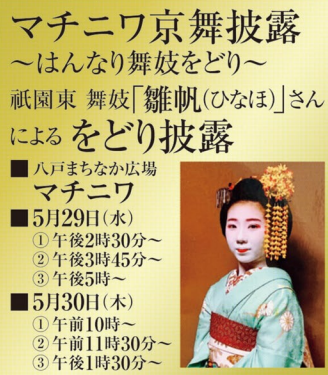 マチニワ京舞披露
~はんなり舞妓をどり~
祇園東 舞妓「雛帆(ひなほ)」さん
による をどり披露
■ 八戸まちなか広場
マチニワ
■ 5月29日(水)
①午後2時30分~
②午後3時45分~
③午後5時~
■ 5月30日(木)
①午前10時~
②午前11時30分~
③午後1時30分~